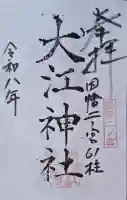 奉拝
因幡二宮61柱
大江神社
令和八年